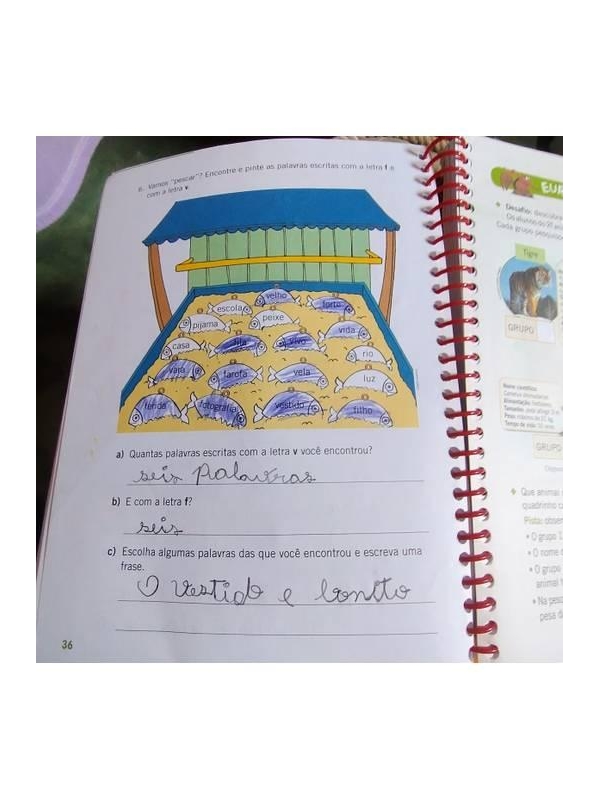 6. Vamos "pescar"? Encontre e pinte as palavras escritas com a letra f e
com a letra v.
velho
escola
forte
peixe
pijama
vida
casa
fila
vivo
rio
vara
farofa
vela
luz
ferida
fotografia
vestido
filho
a) Quantas palavras escritas com a letra v você encontrou?
seis palavras
b) E com a letra f?
seis
c) Escolha algumas palavras das que você encontrou e escreva uma
frase.
O vestido e bonito
36
EUR
Desafio: descobrir
Os alunos do 9º an
Cada grupo pesquiso
Tigre
GRUPO
Nome científico:
Tempo de vida:
GRUPO
Que animais
quadrinho c
Pista: obser
• O grupo 1
• O nome
• O grupo
animal
• Na pesq
pesa d